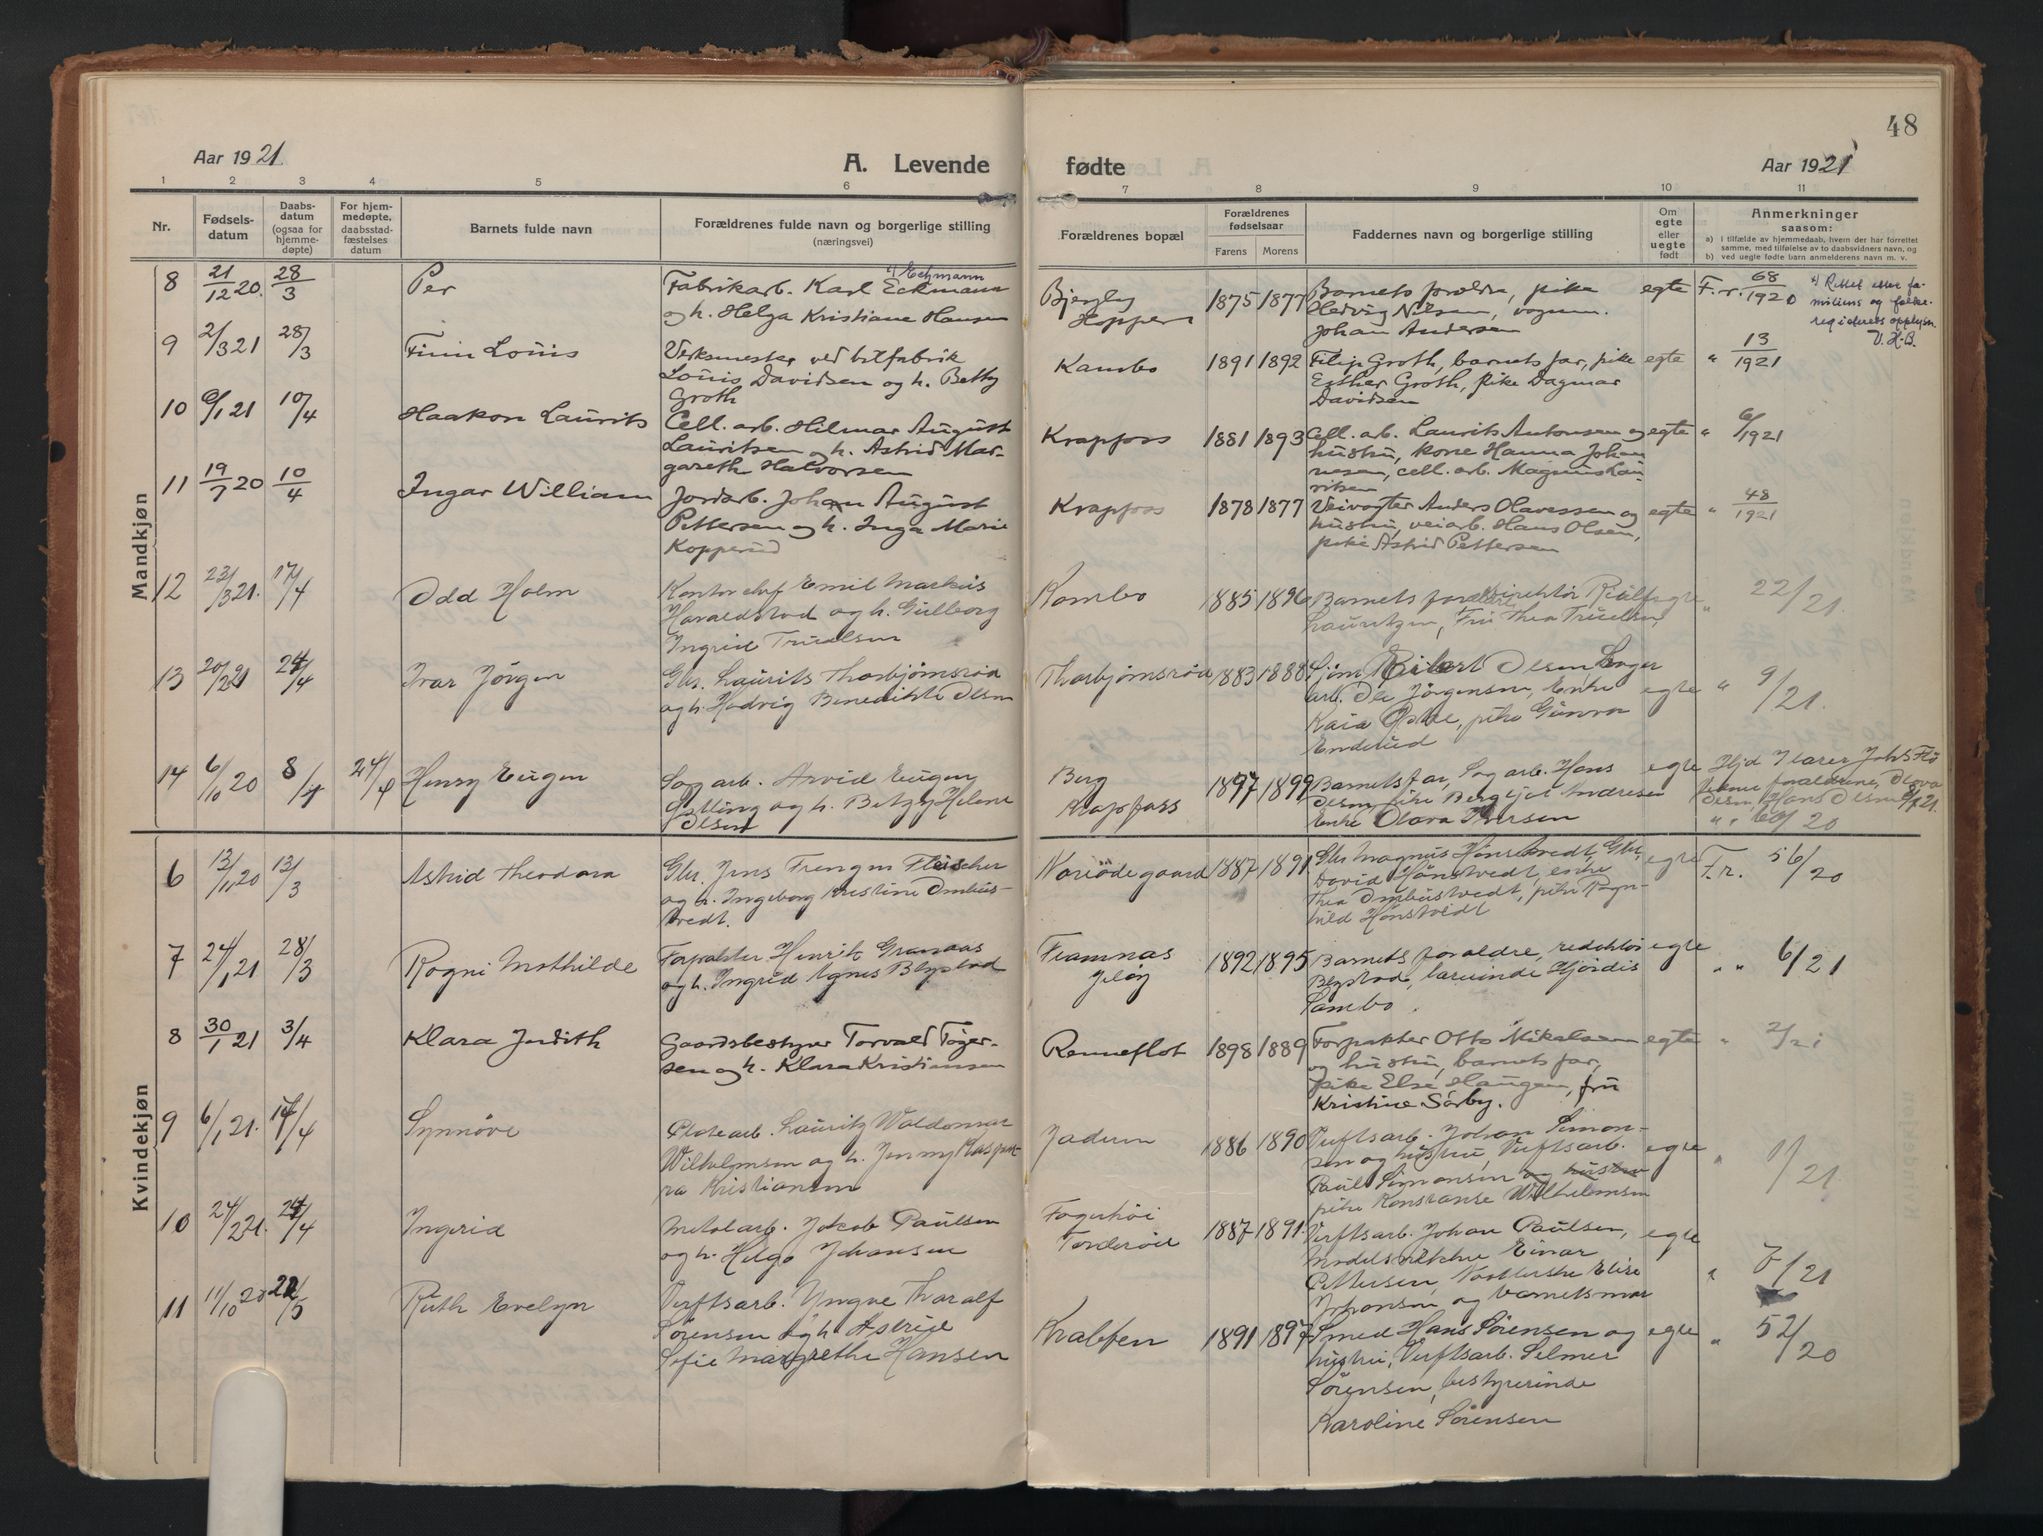 48
Aar 1921.
A. Levende
fødte
Aar 1921
1 2 3 4 5 6 7 8 9 10 11
Nr.
Fødsels-
datum
Daabs-
datum
(ogsaa for
hjemme-
døpte)
For hjem-
medøpte,
daabsstad-
fæstelses
datum
Barnets fulde navn
Forældrenes fulde navn og borgerlige stilling
(næringsvei)
Forældrenes bopæl
Forældrenes
fødselsaar
Farens Morens
Faddernes navn og borgerlig stilling
Om
egte
eller
uegte
født
Anmerkninger
saasom:
a) I tilfælde av hjemmedaab, hvem der har forrettet
samme, med tilføielse av to daabsvidners navn, og
b) ved uegte fødte barn anmelderens navn m. v.
Mandkjøn
8 21/12 20. 28/3 Per
Fabrikarb. Karl Eckmann
Echmann
og h. Helga Kristiane Hansen
Bjergby
Hoppern
1875 1877
Barnets forældre, pike
Hedvig Nilsen, vognm.
Johan Andersen
egte F. r. 68/1920
Rettet efter fa-
miliens og folke-
registerets opplysn.
V. H-B.
9 2/3 21 28/3 Finn Louis
Verksmester ved bilfabrik
Louis Davidsen og h. Betty
Groth
Kambo
1891 1892
Filip Groth, barnets far, pike
Esther Groth, pike Dagmar
Davidsen
egte " 13/1921
10 6/1 21 10/4 Haakon Laurits
Cell. arb. Hilmar August
Lauritsen og h. Astrid Mar-
gareth Halvorsen
Krapfoss
1881 1893
Cell. arb. Laurits Antonsen og
hustru, kone Hanna Johan
nesen, cell. arb. Magnus Lau-
ritsen
egte " 6/1921
11 19/7 20 10/4 Ingar William
Jordarb. Johan August
Pettersen og h. Inga Marie
Kopperud
Krapfoss
1878 1877
Veivogter Anders Olavessen og
hustru, veiarb. Hans Olsen,
pike Astrid Pettersen
egte " 48/1921
12 23/3 21. 17/4 Odd Holm
Kontorchef Emil Markus
Haraldstad og h. Gudborg
Ingrid Truelsen
Kambo
1885 1896
Barnets forældre, direktør
Lauritzen, Fru Thea Truelsen,
egte " 22/21.
13 20/2 21 24/4 Ivar Jørgen
Gbr. Laurits Thorbjørnsrød
og h. Hedvig Benedikte Olsen
Thorbjørnsrød
1883 1888
Eilert Olsen, Lager
arb. Ole Jørgensen, Enke
Kaia pike Gunvor
Enderud
egte " 9/21.
14 6/10 20 8/4 24/4 Henry Eugen
Sagarb. Arvid Eugen
og h. Betzy Helene
Olsen
Berg
Krapfoss
1897 1899
Barnets far, Sagarb. Hans
Olsen, pike Bergljot Andresen
Enke Olava Iversen
egte Hjd. Lærer Johs Flø
forældrene, Olava
Olsen, Hans Olsen 21.
" " 60/20
Kvindekjøn
6 13/11 20 13/3 Astrid Theodora
Gbr. Jens Frengen Fleischer
og h. Ingeborg Kristine Ombus-
tvedt.
Norrødegaard
1887 1891.
Gbr. Magnus Hønstvedt, Gbr.
David Hønstvedt, enke
Thea Ombustvedt, pike Ragn-
hild Hønstvedt
egte F. r. 56/20
7 24/1 21 28/3 Rogni Mathilde
Forpakter Henrik Granaas
og h. Ingrid Agnes Blystad
Framnas
Jeløy
1892 1895
Barnets forældre, redaktør
Blystad, lærerinde Hjørdis
Sambo.
egte " " 6/21
8 30/1 21 3/4 Klara Judith
Gaardsbestyrer Torvald Torger-
sen og h. Klara Kristiansen
Renneflot
1898 1889
Forpakter Otto Mikalsen
og hustru, barnets far,
pike Else Haugen, fru
Kristine Sørby.
egte " 2/21
9 6/1 21. 17/4 Synnøve
Platearb. Lauritz Waldemar
Wilhelmsen og h. Jenny Kaspa-
ra Kristiansen
Jadum
1886 1890
Verftsarb. Johan Simon-
sen og hustru, Verftsarb.
Paul Simonsen og hustru
pike Konstanse Wilhelmsen
egte " 1/21
10 24/2 21. 24/4 Ingerid
Metalarb. Jakob Paulsen
og h. Helga Johansen
Fagerhøi
Torderød
1887 1891.
Verftsarb. Johan Paulsen,
Modelsnekker Einar
Pettersen, Elise
Johansen og barnets mor
egte " 7/21
11 11/10 20 22/5 Ruth Evelyn
Verftsarb. Yngve Thoralf
Sørensen og h. Astrid
Sofie Margrethe Hansen
Krabfen
1891 1897
Smed Hans Sørensen og
hustru, Verftsarb. Selmer
Sørensen, bestyrerinde
Karoline Sørensen
egte " 52/20